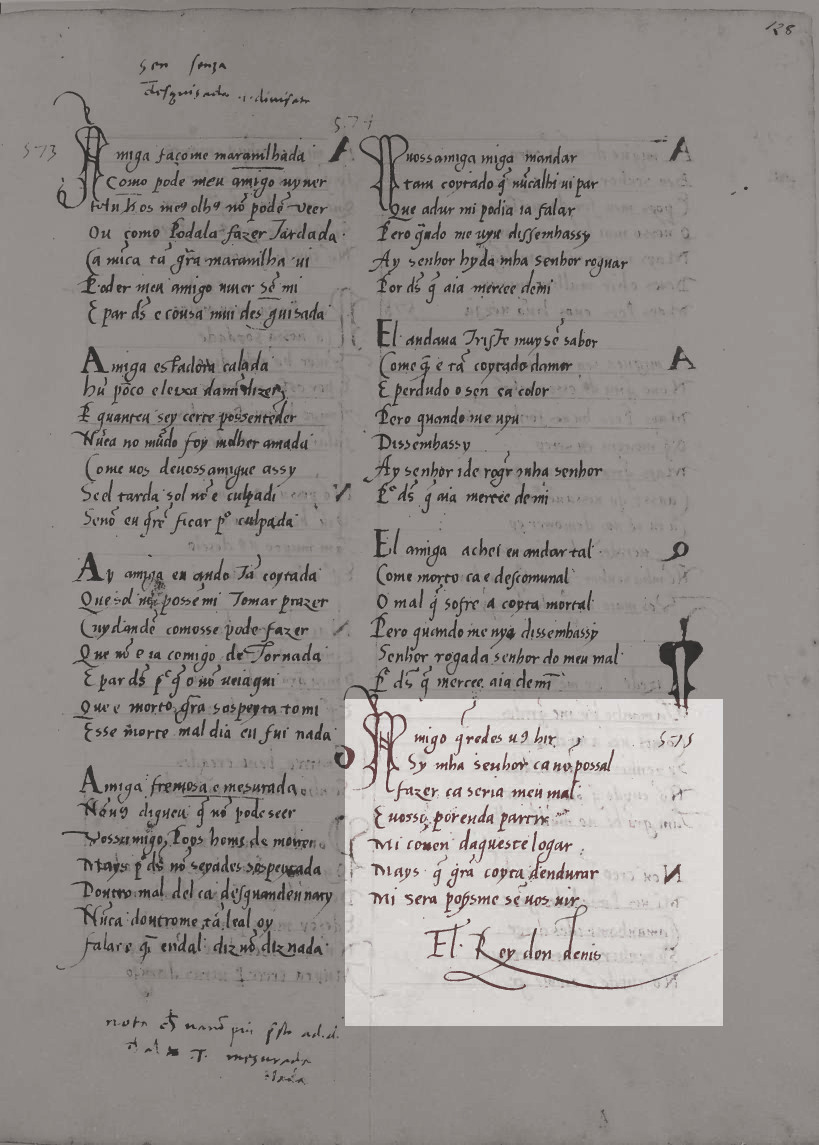 128
sen senza
desguisada .i. divisata
573
Amiga faço me maravilhada
Como pode meu amigo viver
hu os me9 olh9 nō podē veer
Ou como Podala fazer Tardada
Ca nūca tā grā maravilha vi
Poder meu amigo viver sē mi
E par ds̄ e cousa mui des guisada
Amiga estadora calada
hū pōco e leixa dami dizer
P quanteu sey certe possenteder
Nūca no mūdo foy molher amada
Come vos devoss amigue assy
Se el tarda sol nō e culpadi
Senō eu q̄rē ficar po culpada
Ay amiga eu ando Tā coytada
Que sol nō possē mi Tomar prazer
Cuydandē comosse pode fazer
Que nō e ia comigo de Tornada
E par ds̄ pq̄ o nō veiaqui
Que e morto grā sospeyta tomi
Esse morte mal dia eu fui nada
Amiga fremosa e mesurada
Nōv9 digueu q̄ nō pode seer
Vossamigo Poys home de morrer
Mays p ds̄ nō seyades sospeytada
Doutro mal del ca desquandeu nacy
Nūca doutrome tā leal oy
falar e q̄ endal diz nō diz nada
574
A vossamiga miga mandar
tam coytado q̄ nūcalhi vi par
Que adur mi podia ia falar
Pero q̄ndo me vyu dissembassy
Ay senhor hyda mha senhor roguar
Por ds̄ q̄ aia mercee demi
El andava Triste muy sē sabor
Come q̄ e tā coytado damor
E perdudo o sen ea color
Pero quando me vyu
Dissembassy
Ay senhor ide rogr mha senhor
Po ds̄ q̄ aia mercee demi
El amiga achei eu andar tal
Come morto ca e descomunal
O mal q̄ sofre a coyta mortal
Pero quando me vyo dissembassy
Senhor rogada senhor do meu mal
P ds̄ q̄ mercee aia demī
575
Amigo q̄redes v9 hir
Sy mha senhor ca nō possal
fazer ca seria meu mal
E vosso porenda partir
Mi coven daqueste logar
Mays q̄ grā coyta dendurar
Mi sera poysme sē vos vir
El Rey don denis
mesurada